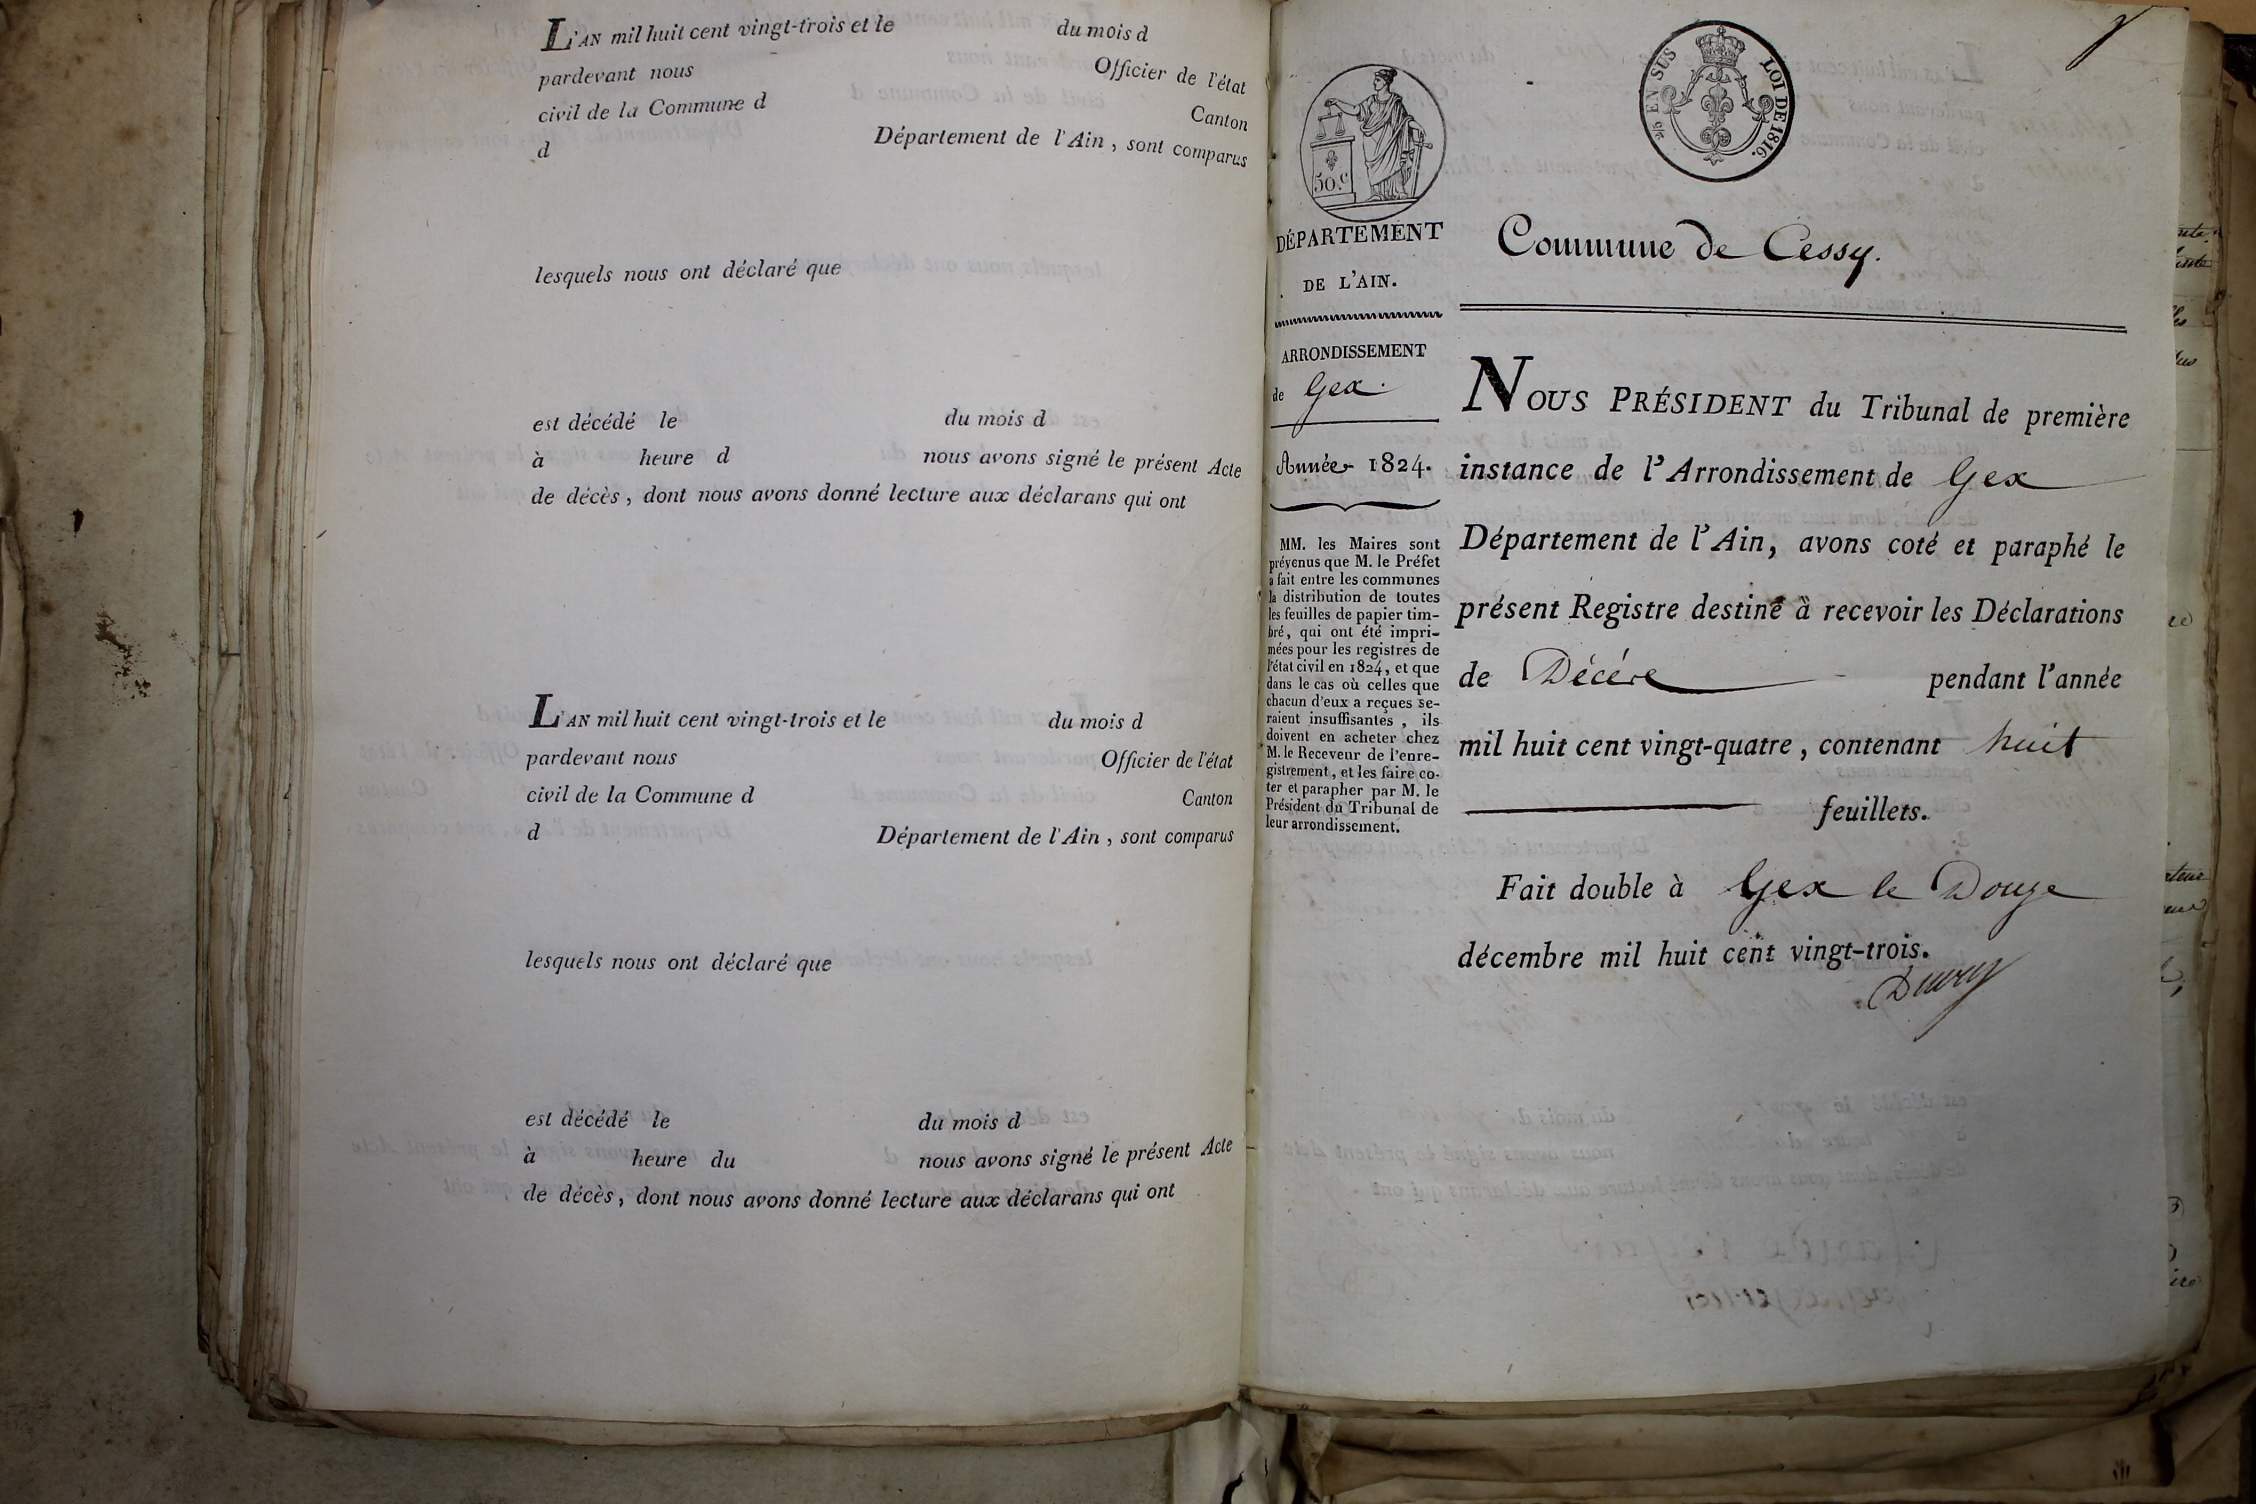 L'AN mil huit cent vingt-trois et le du mois d
pardevant nous Officier de l'état
civil de la Commune d Canton
d Département de l'Ain, sont comparus
lesquels nous ont déclaré que
est décédé le du mois d
à heure d nous avons signé le présent Acte
de décès, dont nous avons donné lecture aux déclarans qui ont
L'AN mil huit cent vingt-trois et le du mois d
pardevant nous Officier de l'état
civil de la Commune d Canton
d Département de l'Ain, sont comparus
lesquels nous ont déclaré que
est décédé le du mois d
à heure du nous avons signé le présent Acte
de décès, dont nous avons donné lecture aux déclarans qui ont
50.c
EN SUS
LOI DE 1816.
DÉPARTEMENT
DE L'AIN.
ARRONDISSEMENT
de Gex.
Année 1824.
MM. les Maires sont
prévenus que M. le Préfet
a fait entre les communes
la distribution de toutes
les feuilles de papier tim-
bré, qui ont été impri-
mées pour les registres de
l'état civil en 1824, et que
dans le cas où celles que
chacun d'eux a reçues se-
raient insuffisantes, ils
doivent en acheter chez
M. le Receveur de l'enre-
gistrement, et les faire co-
ter et parapher par M. le
Président du Tribunal de
leur arrondissement.
Commune de Cessy.
NOUS PRÉSIDENT du Tribunal de première
instance de l'Arrondissement de Gex
Département de l'Ain, avons coté et paraphé le
présent Registre destiné à recevoir les Déclarations
de Décés pendant l'année
mil huit cent vingt-quatre, contenant huit
feuillets.
Fait double à Gex le Douze
décembre mil huit cent vingt-trois.